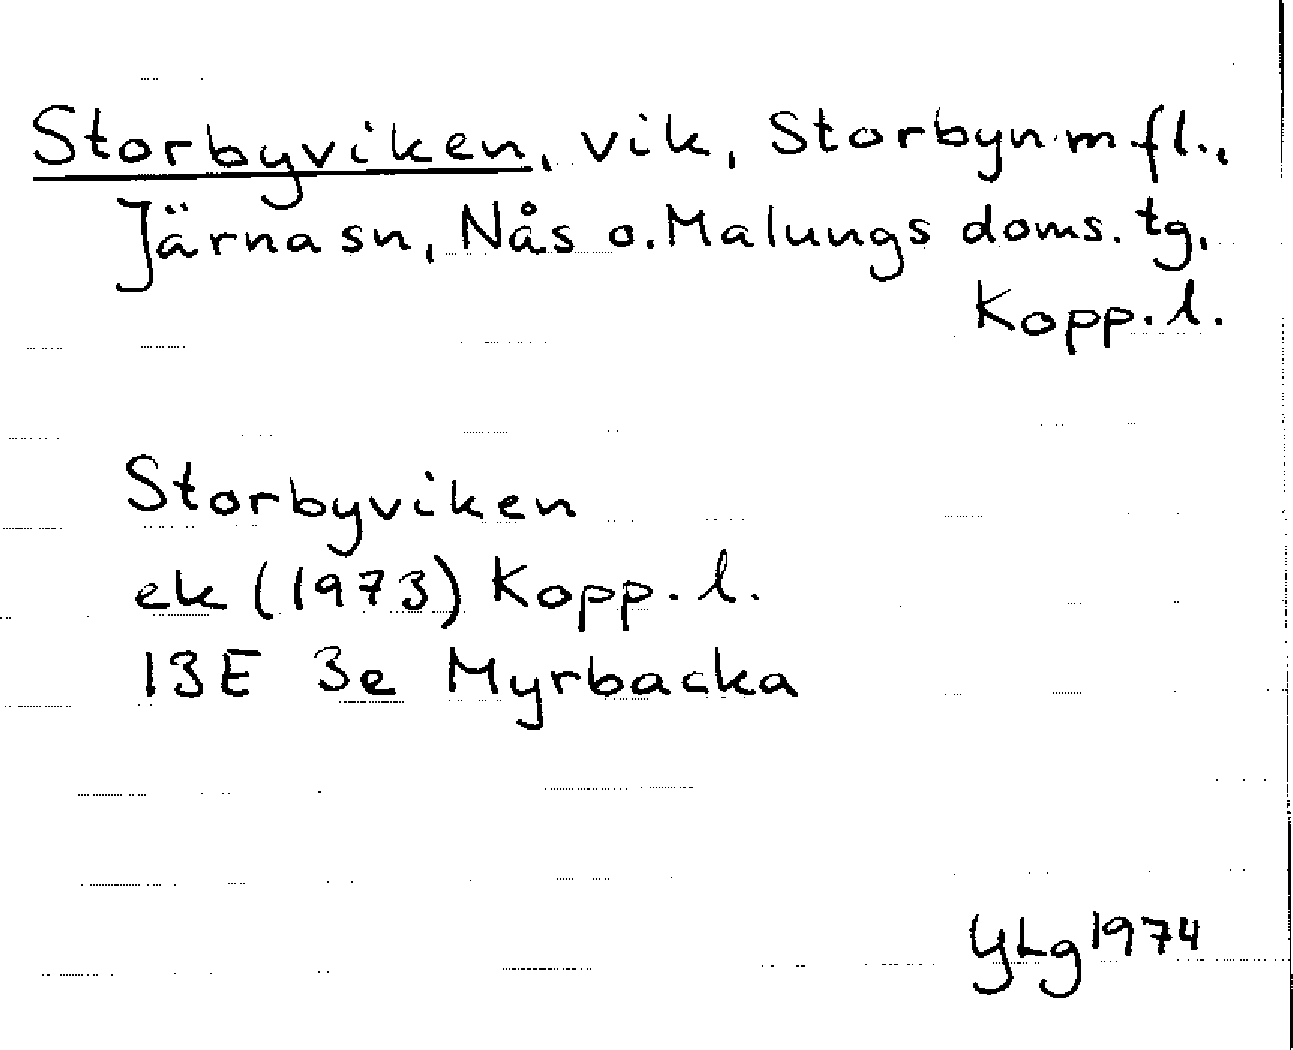 Storbyviken, vik, Storbyn m fl.,
Järna sn, Nås o. Malungs doms. tg,
Kopp. l.
Storbyviken
ek (1973) Kopp. l.
13E 3e Myrbacka
YLg 1974